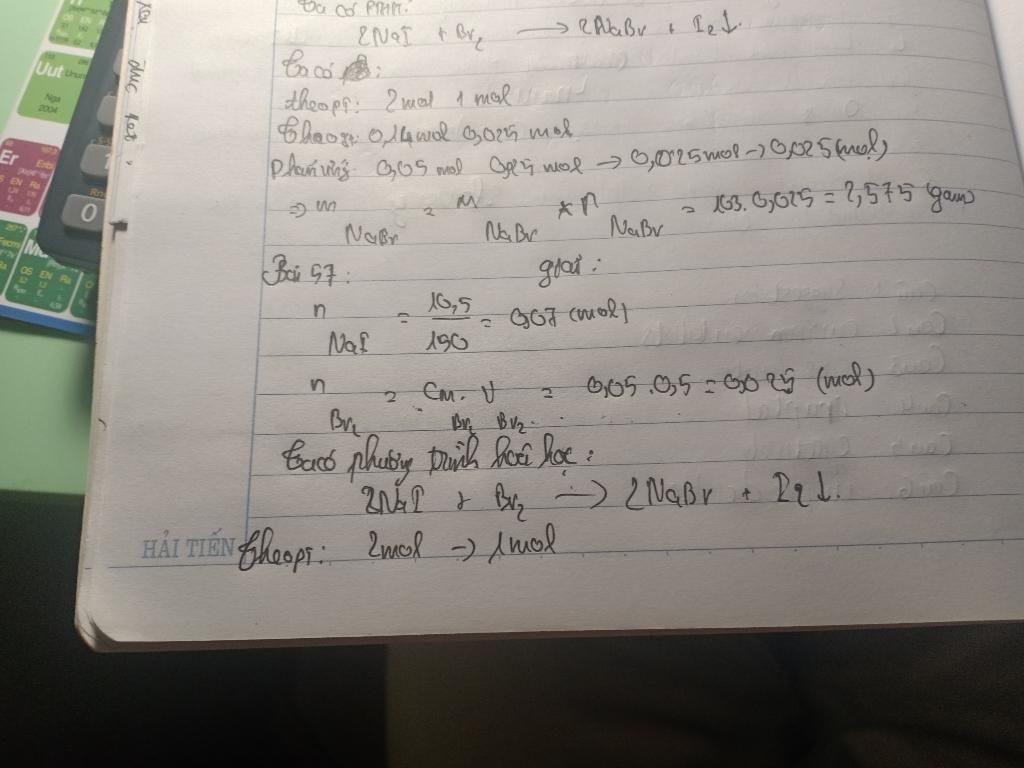 Ta có PTHH:
2NaI + Br2 → 2NaBr + I2↓.
Ta có :
theo pt: 2mol 1 mol
Theo 0,14mol 0,025 mol
Phản ứng: 0,05 mol 0,025 mol → 0,025mol → 0,025(mol)
⇒ m NaBr = M NaBr * n NaBr = 103. 0,025 = 2,575 gam
Bài 57: giải:
n NaI = 10,5/150 = 0,07 (mol)
n Br2 = CM Br2 . V Br2 = 0,05 . 0,5 = 0,025 (mol)
Ta có phương trình hoá học:
2NaI + Br2 → 2NaBr + I2↓.
HẢI TIẾN Theo pt: 2mol → 1mol
Uut Unun
Nga
2004
Er Erbi
OS EN Ra
0